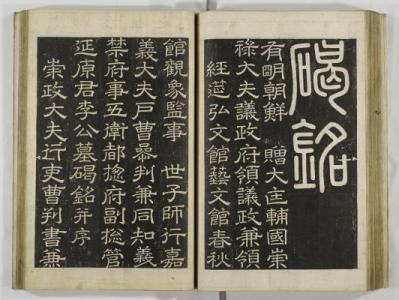 碣銘
有明朝鮮 贈大匡輔國崇
祿大夫議政府領議政兼領
經筵弘文館藝文館春秋
館觀象監事 世子師行嘉
義大夫戶曹叅判兼同知義
禁府事五衛都摠府副摠管
延原君李公墓碣銘并序
崇政大夫行吏曹判書兼